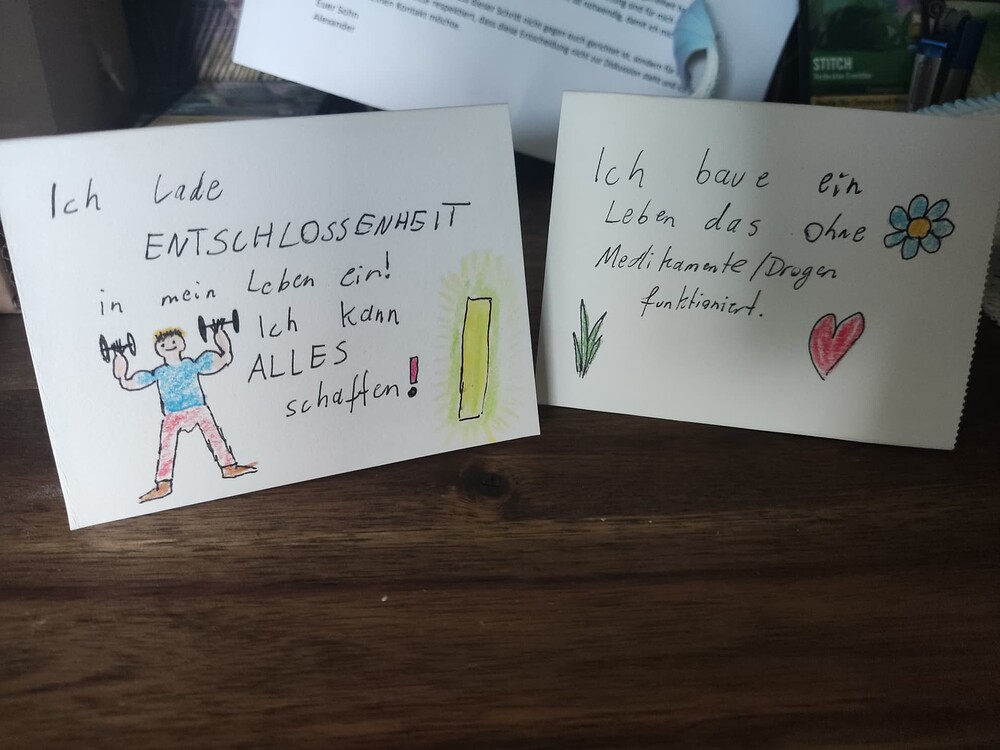 dieser Schritt nicht gegen euch gerichtet ist, sondern für
respektiert, dass diese Entscheidung nicht zur Diskussion steht und
Kontakt möchte.
Euer Sohn
Alexander
STITCH
Ich Lade
ENTSCHLOSSENHEIT
in mein Leben ein!
Ich kann
ALLES
schaffen!
Ich baue ein
Leben das ohne
Medikamente/Drogen
funktioniert.